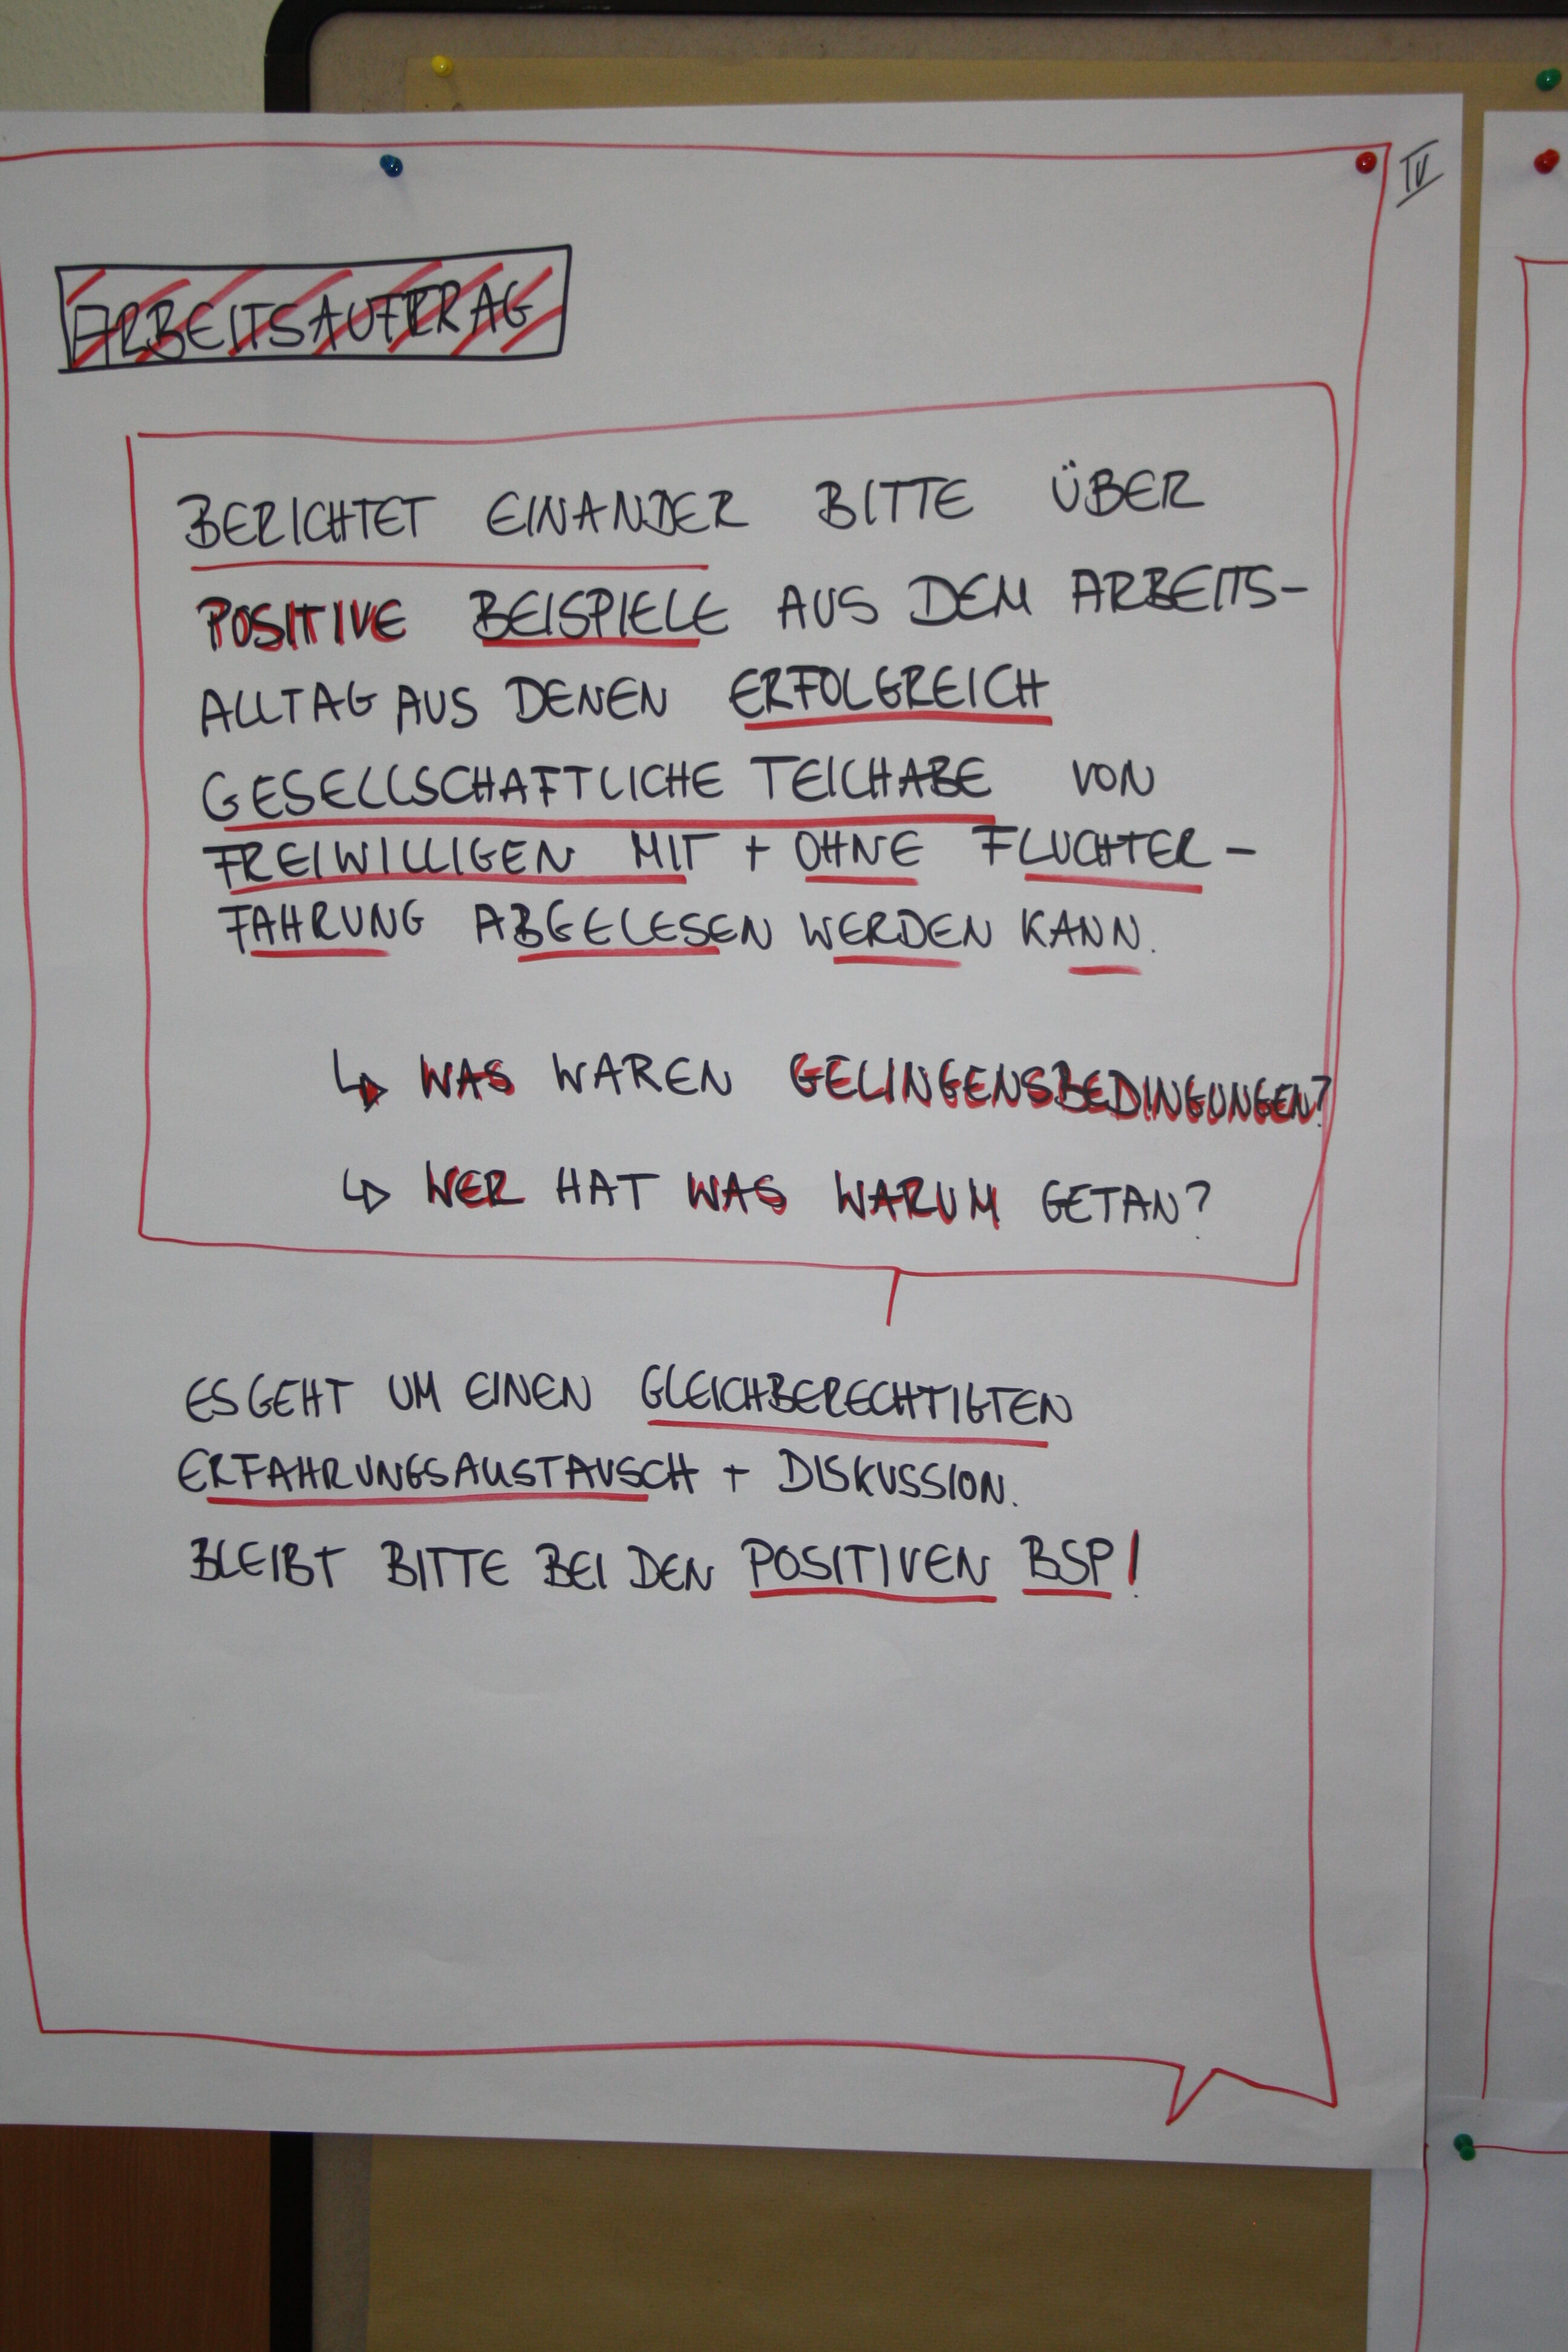 IV
ARBEITSAUFTRAG
BERICHTET EINANDER BITTE ÜBER
POSITIVE BEISPIELE AUS DEM ARBEITS-
ALLTAG AUS DENEN ERFOLGREICH
GESELLSCHAFTLICHE TEILHABE VON
FREIWILLIGEN MIT + OHNE FLUCHTER-
FAHRUNG ABGELESEN WERDEN KANN.
↳ WAS WAREN GELINGENSBEDINGUNGEN?
↳ WER HAT WAS WARUM GETAN?
ES GEHT UM EINEN GLEICHBERECHTIGTEN
ERFAHRUNGSAUSTAUSCH + DISKUSSION.
BLEIBT BITTE BEI DEN POSITIVEN BSP!